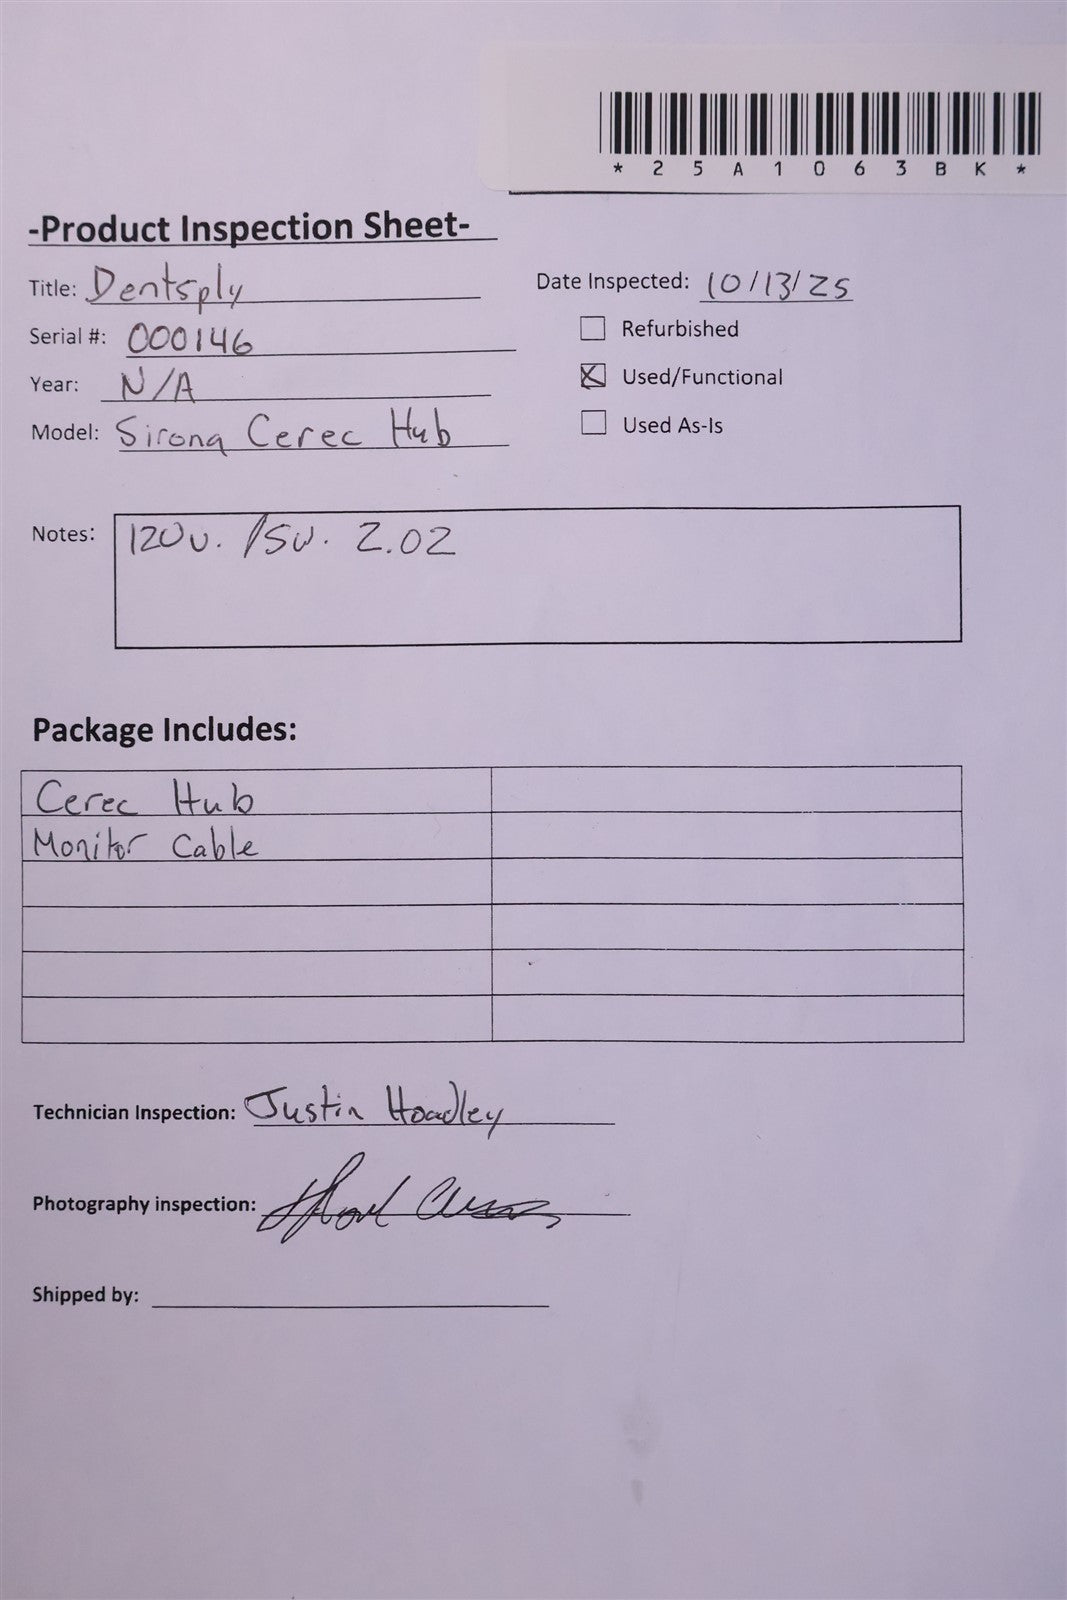 * 2 5 A 1 0 6 3 B K *
-Product Inspection Sheet-
Title: Dentsply
Date Inspected: 10/13/25
Serial #: 000146
Refurbished
Year: N/A
Used/Functional
Model: Sirona Cerec Hub
Used As-Is
Notes: 120v. /SV. 2.02
Package Includes:
Cerec Hub
Monitor Cable
Technician Inspection: Justin Hoadley
Photography inspection:
Shipped by: